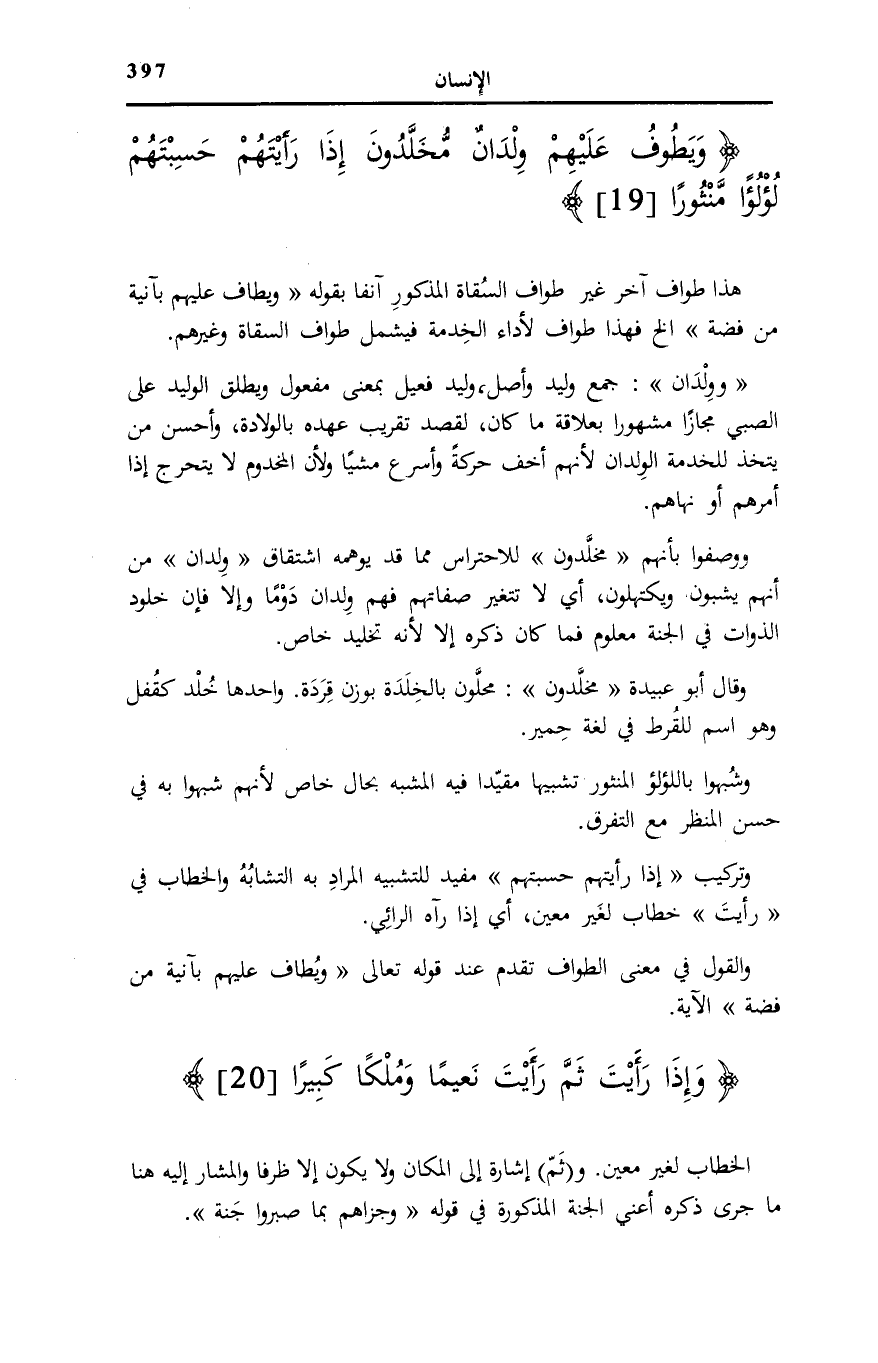 397
الإنسان
﴿ وَيَطُوفُ عَلَيْهِمْ وِلْدَانٌ مُّخَلَّدُونَ إِذَا رَأَيْتَهُمْ حَسِبْتَهُمْ
لُؤْلُؤًا مَّنْثُورًا [19] ﴾
هذا طواف آخر غير طواف السُقاة المذكورِ آنفا بقوله « ويطاف عليهم بآنية
من فضة » الخ فهذا طواف لأداء الخِدمة فيشمل طواف السقاة وغيرهم.
« ووِلْدَان » : جمع وليد وأصل،وليد فعيل بمعنى مفعول ويطلق الوليد على
الصبي مجازًا مشهورا بعلاقة ما كان، لقصد تقريب عهده بالولادة، وأحسن من
يتخذ للخدمة الوِلدان لأنهم أخف حركةً وأسرع مشيًا ولأن المخدوم لا يتحرج إذا
أمرهم أو نهاهم.
ووصفوا بأنهم « مخلَّدون » للاحتراس مما قد يوهمه اشتقاق « وِلدان » من
أنهم يشبون ويكتهلون، أي لا تتغير صفاتهم فهم وِلدان دَوْمًا وإلا فإن خلود
الذوات في الجنة معلوم فما كان ذكره إلا لأنه تخليد خاص.
وقال أبو عبيدة « مخلَّدون » : محلَّون بالخِلَدَة بوزن قِرَدَة. واحدها خُلْد كقُفل
وهو اسم للقُرط في لغة حِمير.
وشُبهوا باللؤلؤ المنثور تشبيها مقيّدا فيه المشبه بحال خاص لأنهم شبهوا به في
حسن المنظر مع التفرق.
وتركيب « إذا رأيتهم حسبتهم » مفيد للتشبيه المرادِ به التشابُهُ والخطاب في
« رأيتَ » خطاب لغَير معين، أي إذا رآه الرائِي.
والقول في معنى الطواف تقدم عند قوله تعالى « ويُطاف عليهم بآنية من
فضة » الآية.
﴿ وَإِذَا رَأَيْتَ ثَمَّ رَأَيْتَ نَعيمًا وَمُلْكًا كَبِيرًا [20] ﴾
الخطاب لغير معين. و(ثَمّ) إشارة إلى المكان ولا يكون إلا ظرفا والمشار إليه هنا
ما جرى ذكره أعني الجنة المذكورة في قوله « وجزاهم بما صبروا جَنة ».